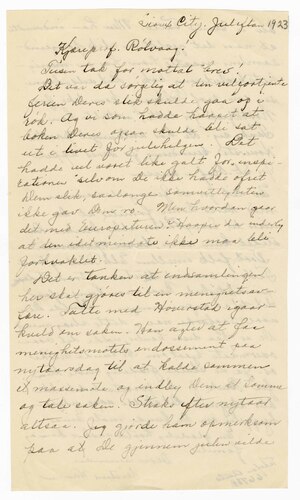 Sioux City, Julaften 1923
Kjære pr. Rølvaag.
Tusen tak for mottat brev!
Det var da sørgelig at den velfortjente
ferien Deres slik skulde gaa op i
røk. Og vi som hadde haapet at
boken Deres ogsaa skulde bli sat
ut i livet før julehelgen. Det
hadde vel været like galt for inspi-
rationen selv om De ikke hadde ofret
Dem slik, saalænge samvittigheten
ikke gav Dem ro. Men hvordan gaar
det med Europaturen? Haaper da inderlig
at den idetmindste ikke maa bli
forkvaklet.
Det er tanken at indsamlingen
her skal gjøres til en menighetssa-
Talte med Hovrstad igaar
kveld om saken. Han agted at faa
menighetsmøtets endossement
nytaarsdag til at kalde sammen
et massemøte, og indby Dem at komme
og tale saken. Straks efter nytaar
altsaa. Jeg gjorde ham opmerksom
paa at De gjennem julen vilde